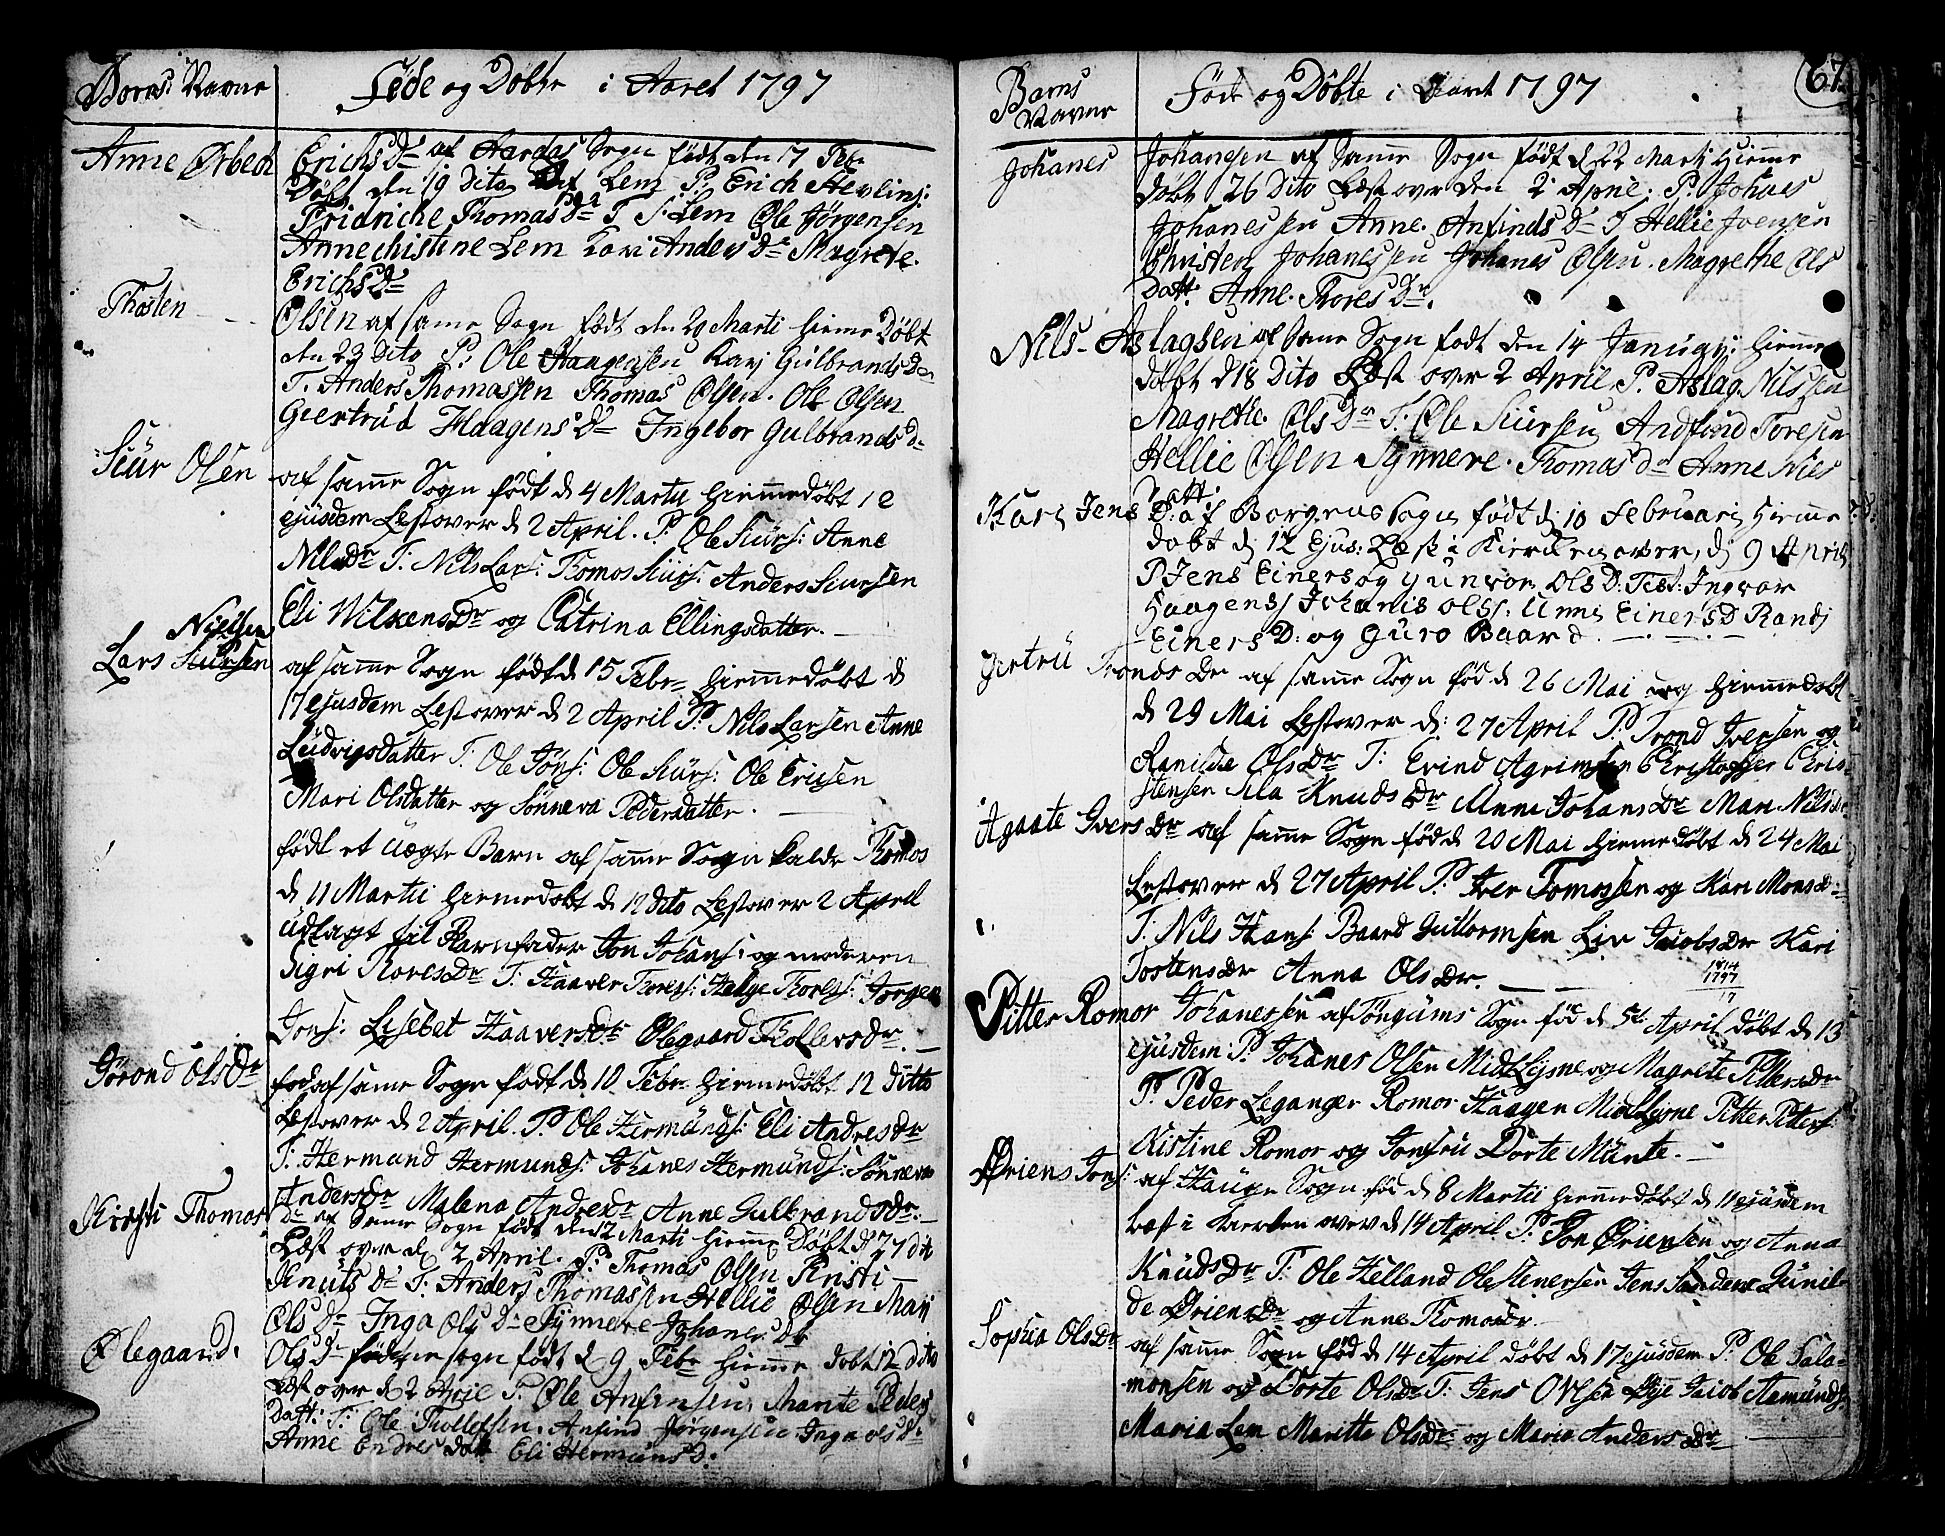 Børns Navne
Føde og Døbte i Aaret 1797
Anne Ørbech
Erichs Dr af Aardas Sogn født den 17 Febr
Døbt den 19 Dito af Lem P. Erich Hevlins:
Fridriche Thomas Dr T S: Lem Ole Jørgensen
Annechistine Lem Kari Anders Dr Magrete
Erichs Dr
Thosten
Olsen af same Sogn født den 20 Marti hieme Døbt
den 23 Dito P: Ole Haagensen Karj Gulbrands Dr
T. Anders Thomassen Thomas Olsen. Ole Olsen
Geertrud Haagens Dr Ingebor Gulbrands Dr
Siur Olsen
af same Sogn født d 4 Martii hiemedøbt 12
ejusdem Lest over d 2 April. P. Ole Siurs: Anne
Nils Dr T: Nils Lars: Tomos Siurs: Anders Siursen
Eli Wilkens Dr og Catrina Ellingsdatter.
Nielsen
Lars Siursen
af same Sogn født d 15 Febr hiemedøbt d
17 ejusdem Lest over d 2 April P. Nils Larsen Anne
Ludvigsdatter T. Ole Jons: Ole Siurs: Ole Ericsen
Mari Olsdatter og Sønneva Pedersdatter.
født et uægte Barn af same Sogn kalde Tomos
d 11 Martii hiemedøbt d 12 dito Lest over 2 April
udlagt til Barnfader Jon Johans: og moderen
Sigri Tores Dr T: Haaver Tores: Helge Tores: Jørgen
Jons: Lisebet Haavers Dr Olegaard Tollevs Dr.
Jørond Ols Dr
fød af same Sogn født d 10 Febr hiemedøbt 12 ditto
Lest over d 2 April. P. Ole Hermunds: Eli Andres Dr
T: Hermand Hermunds: Johanes Hermunds: Sønneva
Anders Dr Malena Andres Dr Anne Gulbrands Dr.
Kirsti Thomas
Dr af Same Sogn født den 12 Marti hieme Døbt d 17 dit
Læst over d 2 April. P: Thomas Olsen Kristi
Knuts Dr T: Anders Thomassen Hellie Olsen Mari
Ols Dr Inga Ols Dr Synnere Johanes Dr
Olegaard.
Ols Dr same sogn født d 9 Febr hieme døbt 12 dito
Læst over d 2 Aprie P: Ole Anfinsen, Marite Peders
Datt: T: Ole Thollefsen. Anfind Jørgensen Inga Ols D.
Anne Endres Dotr Eli Hermuns D:
Barns
Navne
Føde og Døbte i Aaret 1797
67
Johanes
Johanesen af Same Sogn født d 22 Marti hieme
døbt 26 Dito Læst over den 2 Aprie. P: Johaes
Johanessen Anne. Anfinds Dr T Hellie Joensen
Christen Johanessen Johanes Olsen. Magrethe Ols
Datt. Anne. Thores Dr.
Nils Aslagsen af Same Sogn født den 14 Januarj: hieme
døbt d 18 Dito Læst over 2 April. P. Aslag Nilssen
Magrethe Ols Dr T: Ole Siursen Andfind Toresen
Hellie Olsen Synnere. Thomas Dr Anne Nies
Datt.
Kari Jens D: af Borgens Sogn født d: 10 Februari hieme
døbt d: 12 Ejus: Læst i Kierken over, d: 9 April
P Jens Einers og Gunvor Ols D: Test: Ingvar
Haagens: Johanis Ols: Unni Einers D Randj
Einers D: og Guro Baard
Jertru Tronds Dr af same Sogn fød d 26 Mai og hiemedøbt
d 29 Mai Lest over d: 27 April P. Trond Iversen og
Ranilde Ols Dr T: Evind Agrimsen Christoffer Chris-
stensen Sila Knuds Dr Anne Johans Dr Mari Nils Dr
Agaate Ivers Dr af same Sogn fød d 20 Mai hiemedøbt d 24 Mai
Lest over d 27 April P. Iver Tomossen og Kari Mons Dr
T: Nils Hans: Baard Guttormsen Liv Jacobs Dr Kari
Tostens Dr Anna Ols Dr.
1814
1797
17
Pitter Romor Johanessen af Tønjums Sogn fød d 5te April døbt d 13
ejusdem P. Johanes Olsen Midt Lysne og Magrete Pitters Dr
T. Peder Leganger Romor Haagen Midt Lysne Pitter Pitters:
Kistine Romor og Jonfru Dorte Münte.
Øriens Jons:
af Hauge Sogn fød d 8 Martii hiemedøbt d 11 ejusdem
læst i kierken over d 14 April P: Jon Øriensen og Anna
Knuds Dr T: Ole Helland Ole Stenersen Jens Sanders Gunil-
de Øriens Dr og Anne Tomos Dr.
Sophia Ols Dr
af same Sogn fød d 14 April døbt d 17 ejusdem P. Ole Sala-
monsen og Dorte Ols Dr T: Jens Olsen Øye Jacob Aamunds:
Maria Lem Maritte Ols Dr og Maria Anders Dr